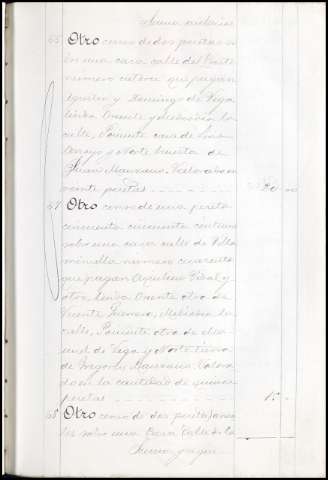 Suma anterior
65 Otro censo de dos pesetas so
bre una casa calle del Puente
número catorce que pagan
y Domingo de Vega
linda Oriente y Mediodía la
calle, Poniente casa de
Arroyo y Norte huerta de
Juan Manzano. Valorado en
veinte pesetas 20
Otro censo de una peseta
cincuenta céntimos
sobre una casa calle de Villa
número cuarenta
que pagan Aquilino Vidal y
otro, linda Oriente otra de
Vicente Mediodía la
calle, Poniente otra de
de Vega y Norte tierra
de Gregorio Manzano. Valora
do en la cantidad de quince
pesetas 15
Otro censo de dos pesetas anua
les sobre una casa calle de la
Suma y sigue